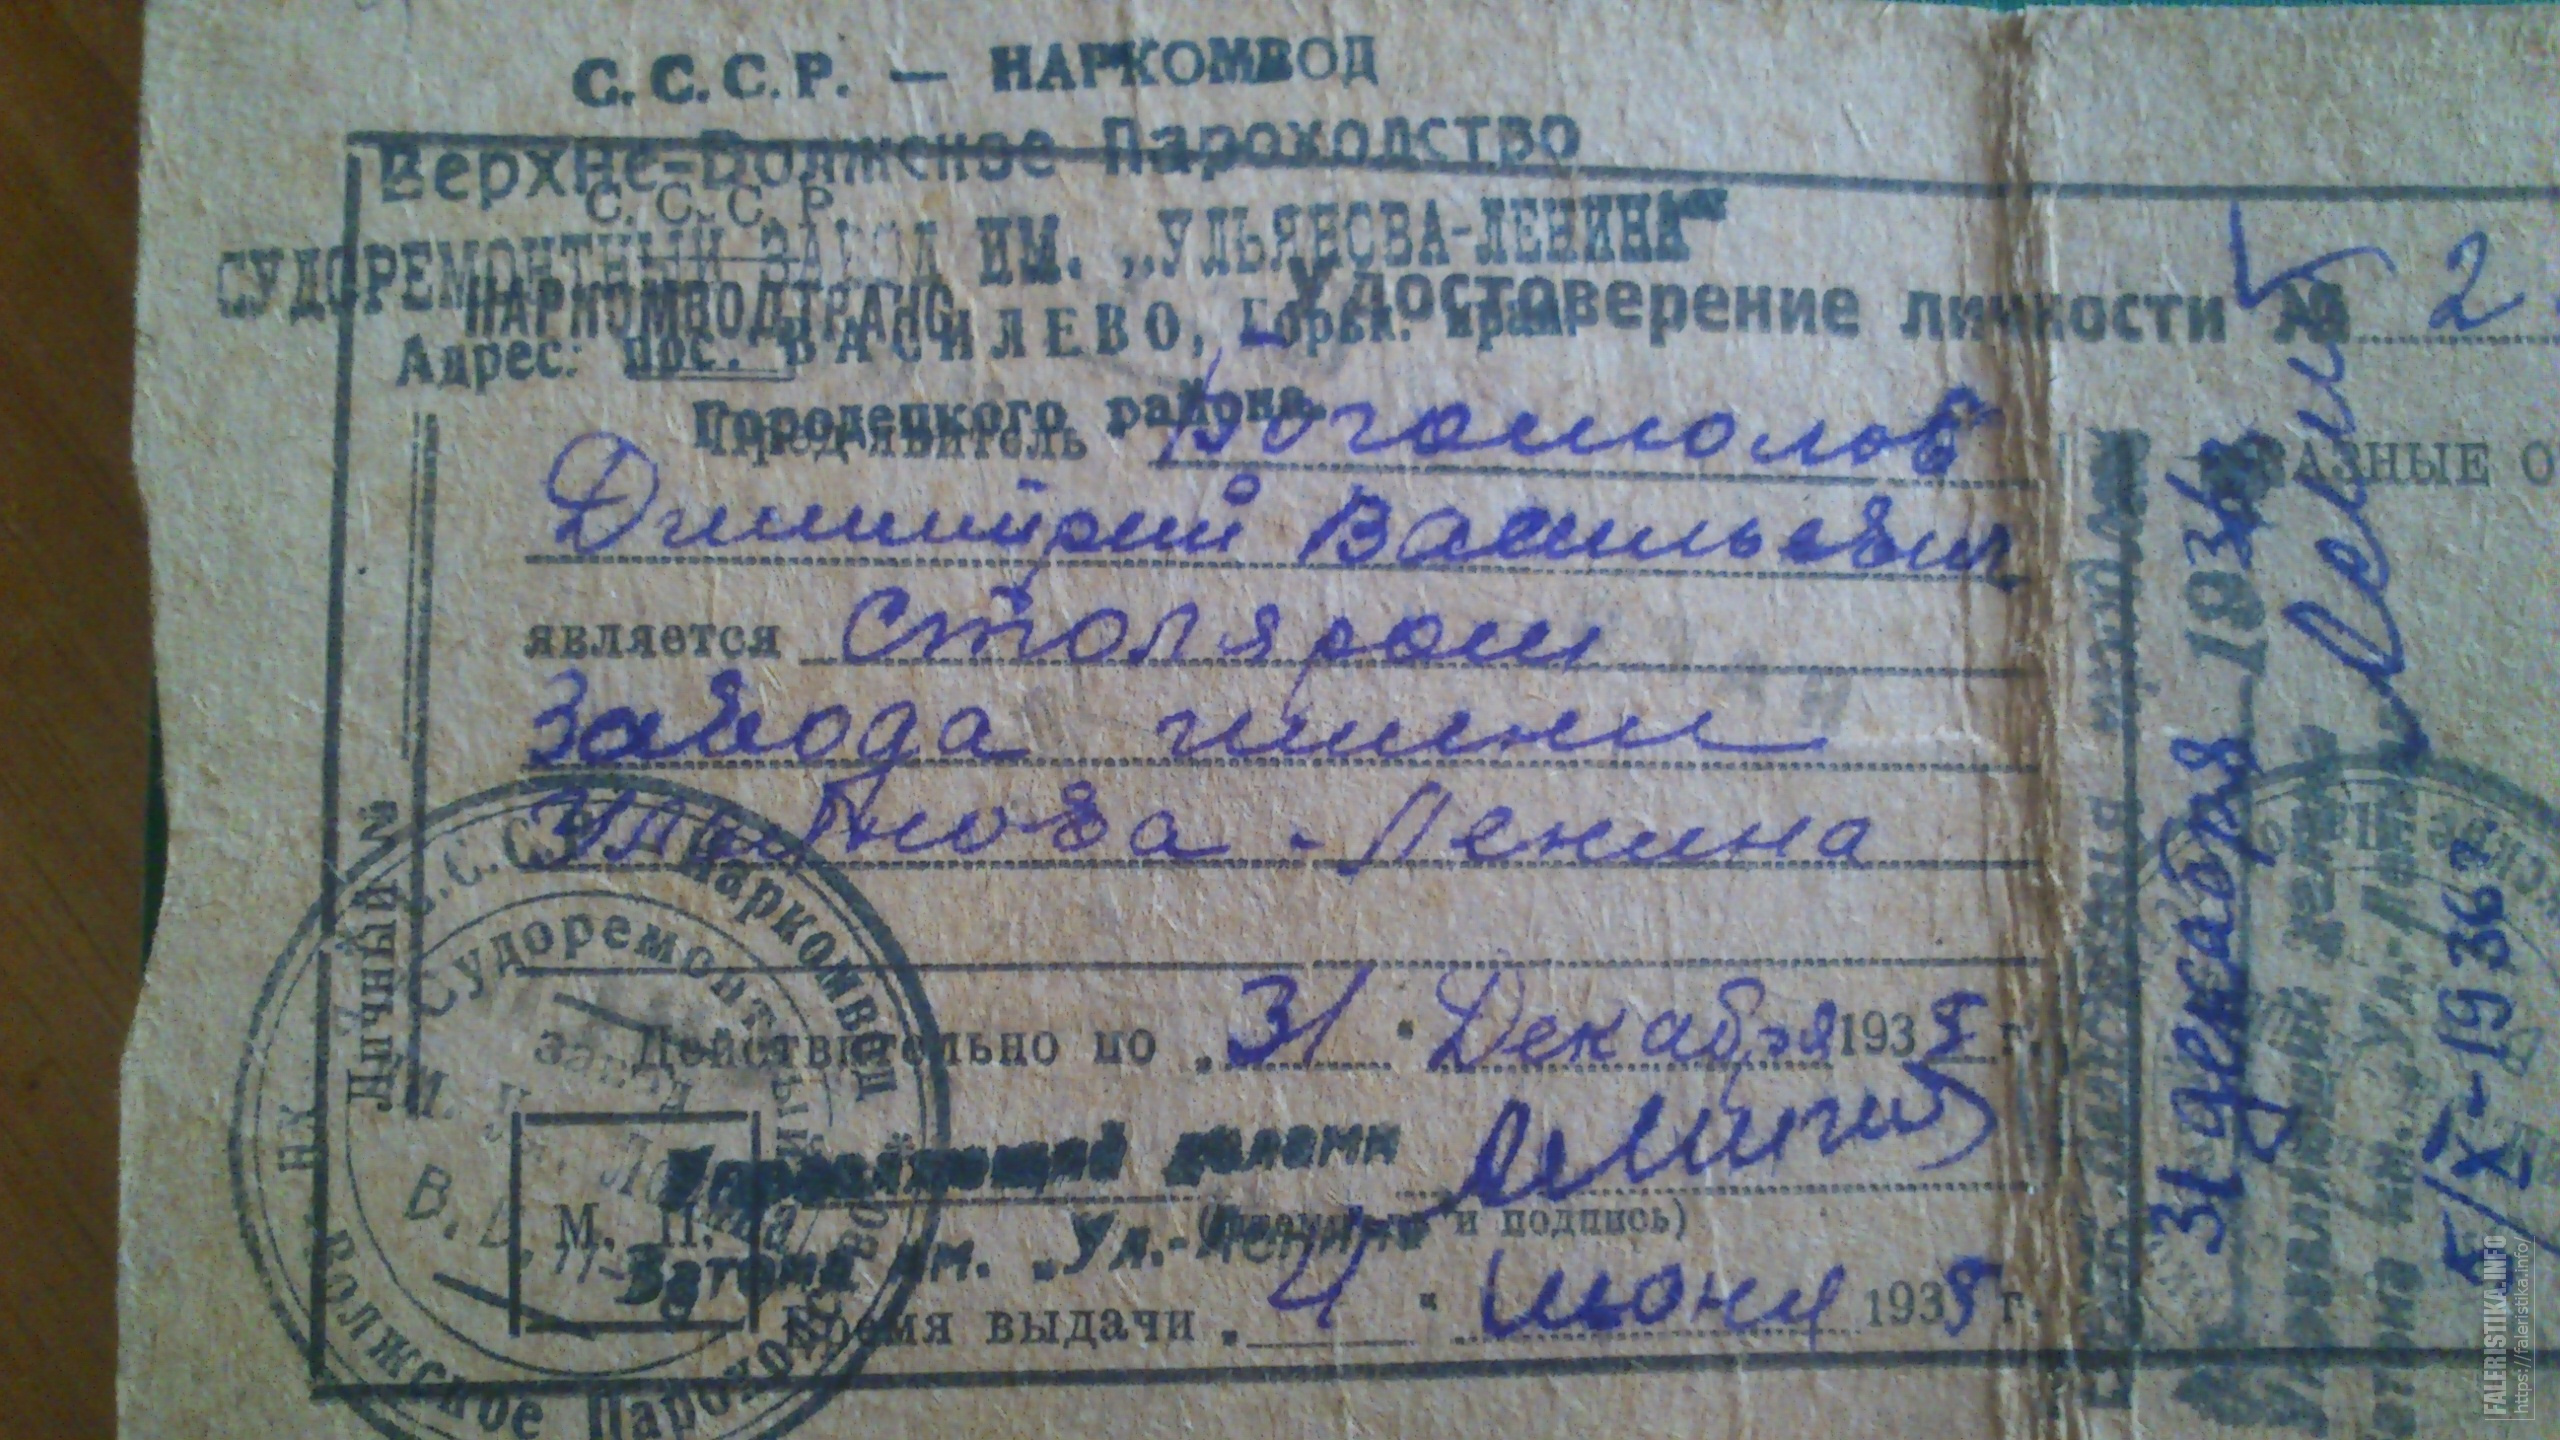 С.С.С.Р. — НАРКОМВОД
Верхне-Волжское Пароходство
С. С. С. Р.
СУДОРЕМОНТНЫЙ ЗАВОД ИМ. „УЛЬЯНОВА-ЛЕНИНА"
НАРКОМВОДТРАНС
Адрес: пос. ВАСИЛЕВО, Горьк. края.
Городецкого района.
Удостоверение личности № 2
Пред'явитель Богомолов
Димитрий Васильевич
является Столяром
Завода имени
Ульянова-Ленина
Личный №
Действительно по „31" Декабря 1935 г.
Управляющий делами
(подпись)
Затона им. „Ул.-Ленина"
М. П.
Время выдачи „4" июня 1935 г.
С.С.С.Р. Наркомвод
Волжское Пароходство
Судоремонтный
завод
РАЗНЫЕ О
31 декабря 1936
Управляющий делами
Затона им. „Ул.-Лен
5/X-1936 г
FALERISTIKA.INFO
https://faleristika.info/